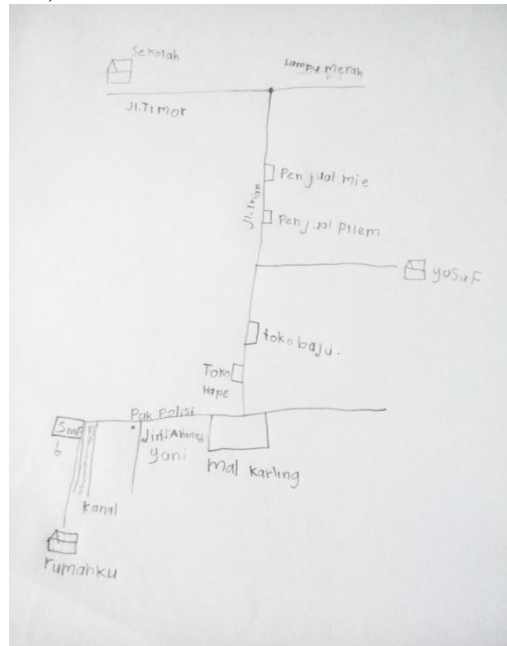 Sekolah
Lampu merah
Jl.Timor
Penjual mie
Jl.Irian
Penjual pilem
yusuf
toko baju.
Toko
Hape
Pak Polisi
Smp
6
yani
mal karling
kanal
rumahku